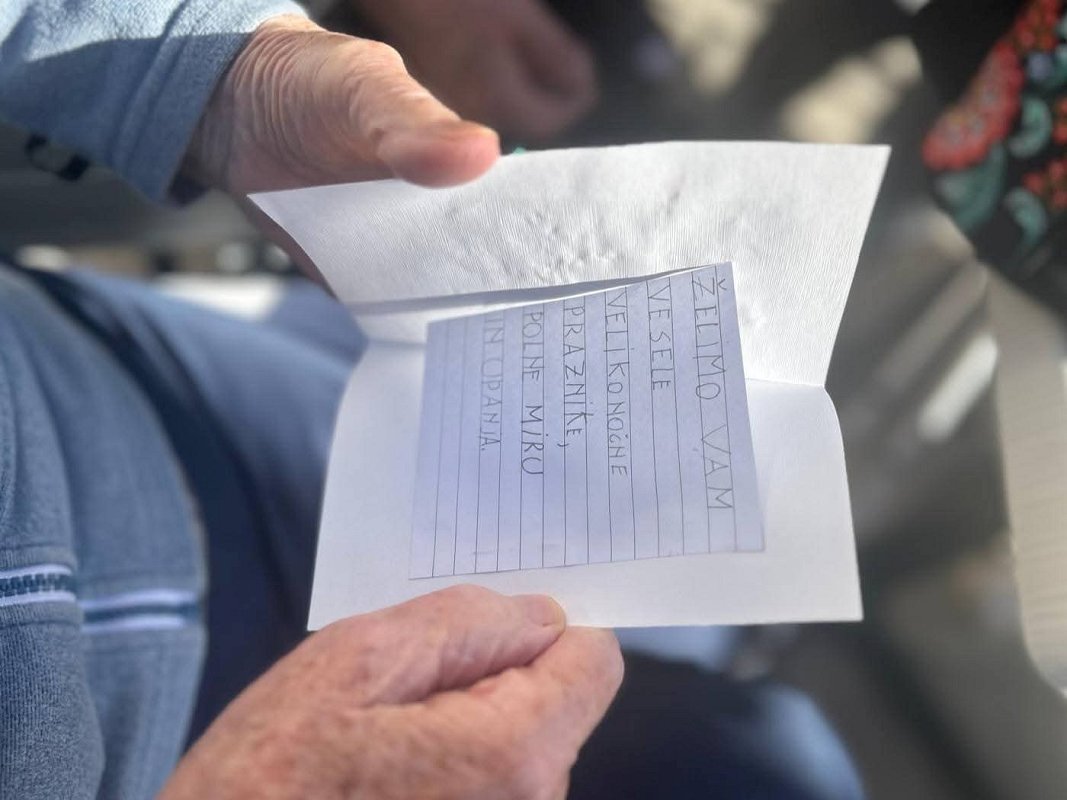 ŽELIMO VAM
VESELE
VELIKONOČNE
PRAZNIKE,
POLNE MIRU
IN UPANJA.